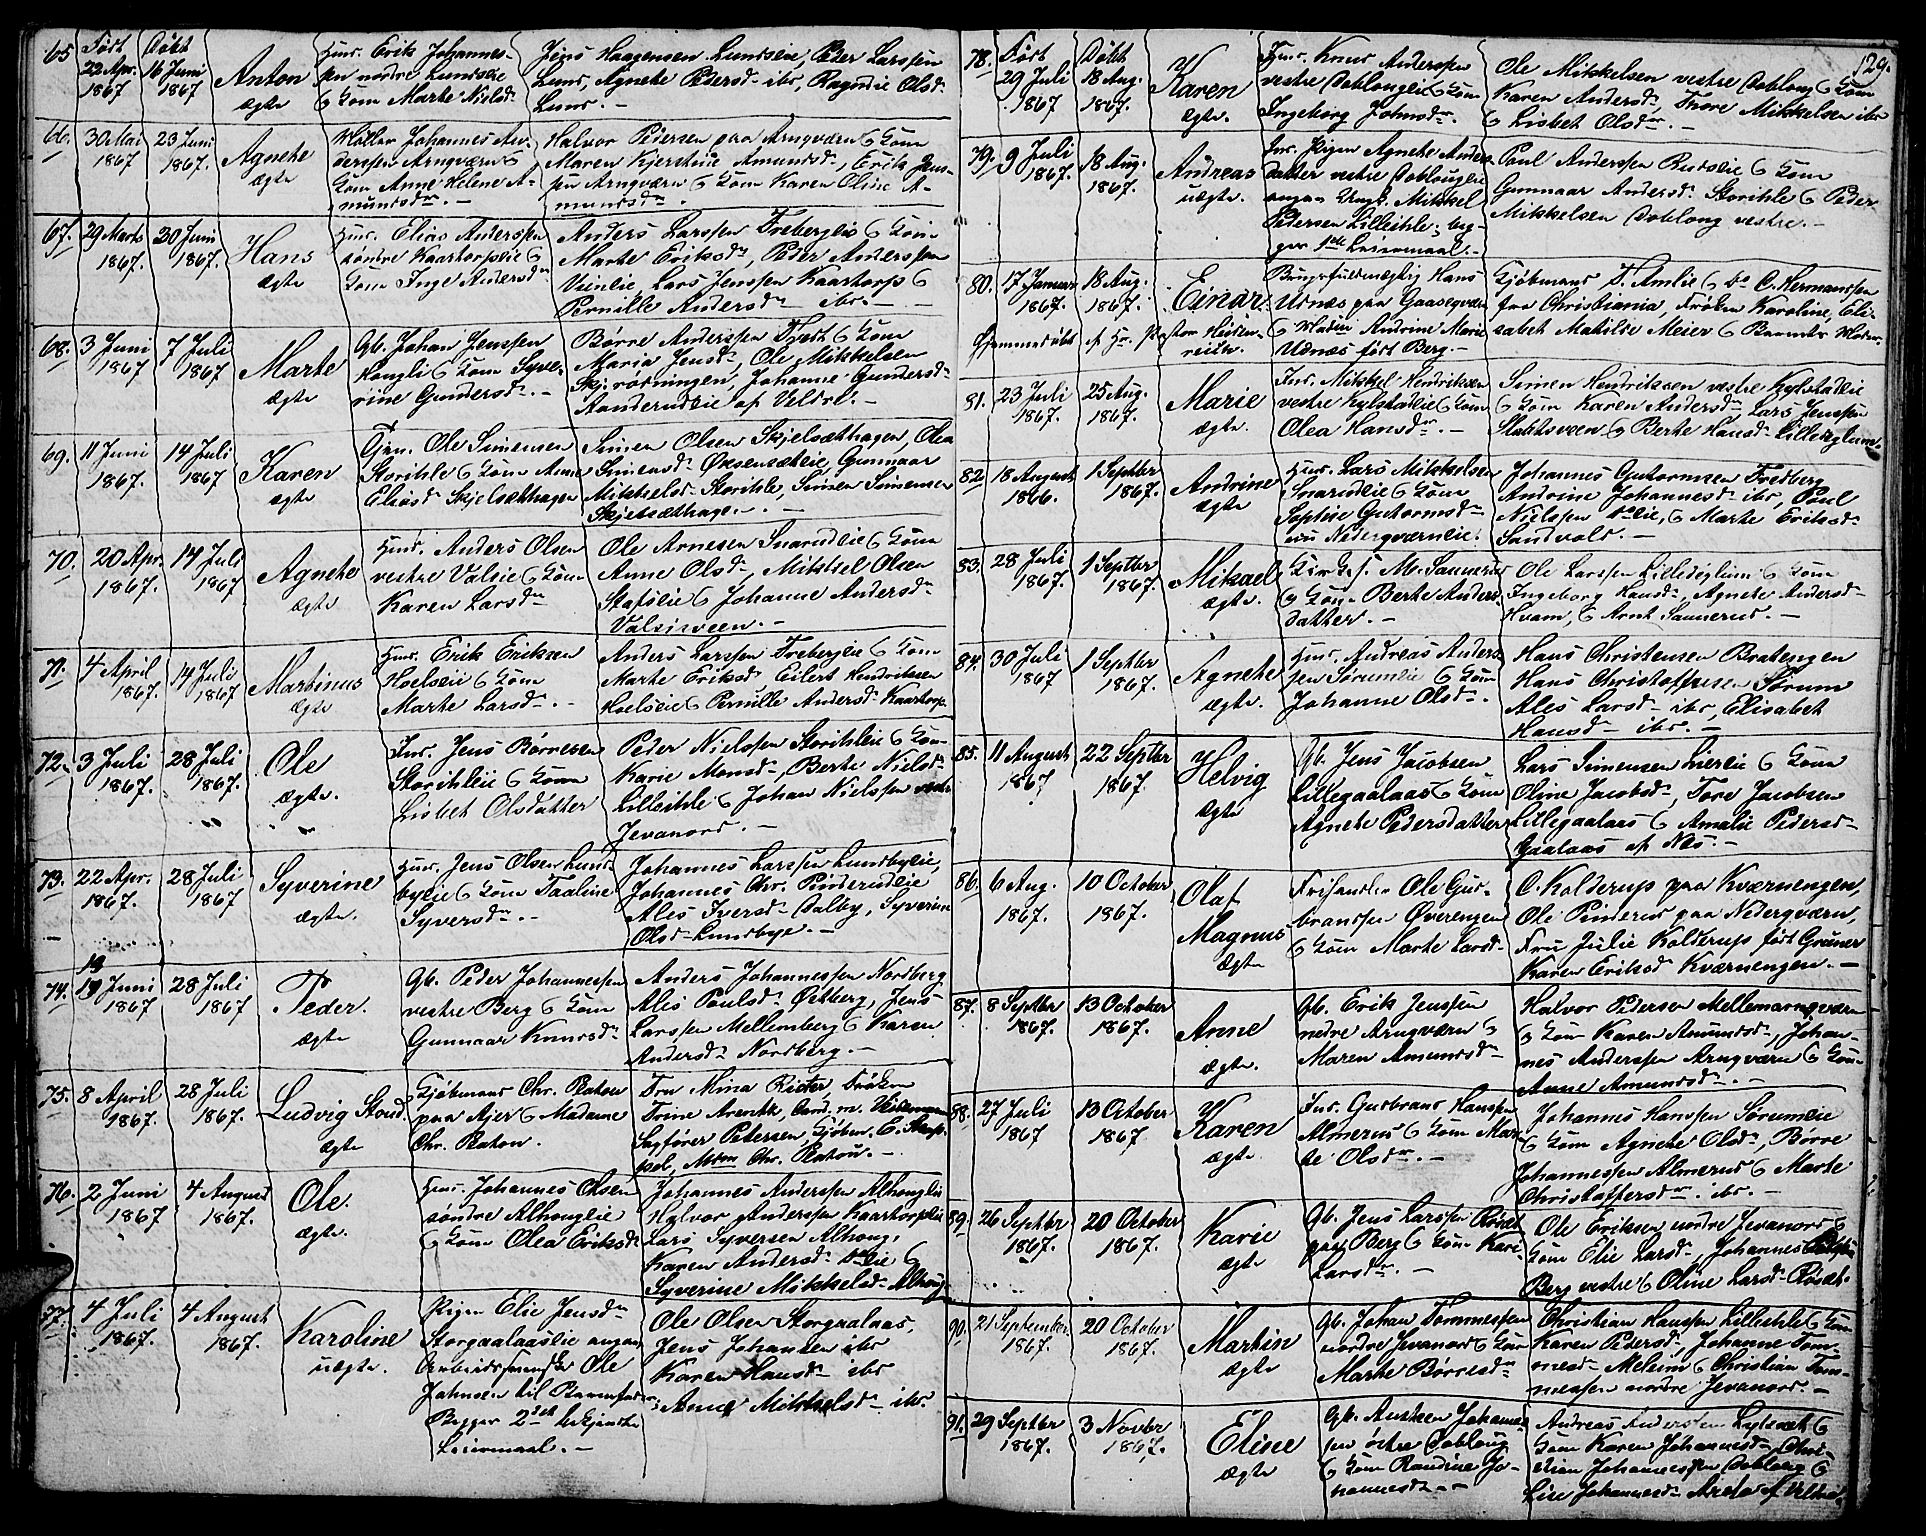 65 Født Døbt
22 Apr. 16 Juni
1867 1867
Anton
ægte
Huus. Erik Johannes-
sen nordre Lundseie
& Kone Marte Nielsdr
Jens Haagensen Lundseie, Peder Larssen
Lund, Agnethe Pedersdr ibr, Ragndie Olsdr
Lund. —
66. 30 Mai 23 Juni
1867 1867.
Agnethe
ægte
Møller Johannes An-
derssen Arngværn &
Kone Anne Helene A-
mundsdr. —
Halvor Pedersen paa Arngværn & Kone
Maren Kjerstine Amundsdr, Erik Jens-
sen Arngværn & Kone Karen Oline A-
mundsdr. —
67. 29 Marts 20 Juni
1867. 1867.
Hans
ægte
Huus. Elias Anderssen
søndre Kaartorpeie &
Kone Inge Andersdr
Anders Larssen Freberglie & Kone
Marte Eriksdr, Peder Anderssen
Vienlie, Lars Jenssen Kaartorp &
Pernille Andersdr ibr. —
68. 3 Juni 7 Juli
1867 1867
Marte
ægte
Gb. Johan Jenssen
Hougli & Kone Syve-
rine Gundersdr. —
Børre Anderssen Tvedt & Kone
Maria Jensdr, Ole Mikkelsen
Skjervosningen, Johanne Gundersdr
Aanderudeie af Veldre. —
69. 11 Juni 14 Juli
1867. 1867
Karen
ægte
Tjen. Ole Simensen
Storihle & Kone Anne
Eliasdr Skjelsæthhagen
Simen Olsen Skjelsæthagen, Olea
Simensdr Øksensætlie, Gunnaar
Mikkelsdr Storihle, Simen Simensen
Skjelsæthage. —
70. 20 Apr. 14 Juli
1867. 1867
Agnethe
ægte
Huus. Anders Olsen
vestre Valseie & Kone
Karen Larsdr
Ole Arnesen Snarudeie & Kone
Anne Olsdr, Mikkel Olsen
Stafseie & Johanne Andersdr
Valsisveen. —
71. 4 April 14 Juli
1867. 1867
Martinus
ægte
Huus. Erik Eriksen
Hoelseie & Kone
Marte Larsdr. —
Anders Larssen Frebergeie & Kone
Marte Eriksdr Eilert Hendriksen
Hoelseie & Pernille Andersdr Kaartorp.
72. 3 Juli 28 Juli
1867. 1867.
Ole
ægte.
Ins. Jens Børresen
Storihleie & Kone
Lisbet Olsdatter
Peder Nielssen Storihleie & Kone
Karie Monsdr, Berte Nielsdr
Lilleihle & Johan Nielssen vestr.
Jevanord. —
73. 22 Apr. 28 Juli
1867. 1867
Syverine
ægte.
Huus. Jens Olsen Lund-
bylie & Kone Taaline
Syversdr. —
Johannes Larssen Lundbylie,
Johannes Chr. Pinderudeie
Ales Iversdr Dalby, Syverine
Olsdr Lundbye. —
74. 19 Juni 28 Juli
1867 1867
Peder.
ægte
Gb. Peder Johannessen
vestre Berg & Kone
Gunnaar Knudsdr
Anders Johannessen Nordberg
Ales Paulsdr Østberg, Jens
Larssen Mellemberg & Karen
Andersdr Nordberg. —
75. 8 April 28 Juli
1867. 1867.
Ludvig Stoud.
ægte
Kjøbmand Chr. Platou
paa Ajer & Madame
Chr. Platou.
Fru Mina Rieter, Frøken
Trine Arentz, Cand. m.
Sagfører Petersen, Kjøbm. C.
Mdm Chr. Platou. —
76. 2 Juni 4 August
1867 1867.
Ole.
ægte.
Huus. Johannes Olsen
søndre Alhouglie
& Kone Olea Eriksdr
Johannes Anderssen Alhouglie
Halvor Anderssen Kaartorpeie
Lars Syversen Alhoug,
Karen Andersdr Doeie &
Syverine Mikkelsdr Alhoug
77. 4 Juli 4 August
1867. 1867.
Karoline
uægte.
Pigen Elie Jensdr
Storgaalaaslie angav
Arbeidsmand Ole
Johnsen til Barnefader
Begges 2det bekjendte
Leiermaal. —
Ole Olsen Storgaalaas,
Jens Johansen ibr
Karen Hansdr ibr
Anne Mikkelsdr ibr.
129.
78. Født Døbt
29 Juli 18 Aug.
1867 1867.
Karen
ægte.
Huus. Knud Anderssen
vestre Doblougeie & Kone
Ingeborg Johnsdr.
Ole Mikkelsen vestre Doblong & Kone
Karen Andersdr, Thore Mikkelsen ibr
& Lisbet Olsdr. —
79. 9 Juli 18 Aug.
1867. 1867.
Andreas
uægte.
Ins. Pigen Agnethe Anders-
datter vestre Doblougeie
angav Ungk. Mikkel
Pedersen Lilleihle, beg-
ges 1ste Leiermaal. —
Paul Anderssen Rudseie & Kone
Gunnaar Andersdr Storihle & Peder
Mikkelsen Doblong vestre. —
80. 17 Januar 18 Aug.
1867. 1867.
Einar.
Hjemmedøbt af Hr. Pastor Heiden-
reich.
Brugsfuldmægtig Hans
Udnæs paa Gaasegværn
& Madm Andrine Marie
Udnæs født Berg. —
Kjøbmand T. Amlie & Do C. Hermanssen
fra Christiania, Frøken Karoline, Eli-
sabet Matilde Meier & Barnets Moder.
81. 23 Juli 25 Aug.
1867. 1867.
Marie
ægte.
Ins. Mikkel Hendriksen
vestre Kylstadeie & Kone
Olea Hansdr. —
Simen Hendriksen vestre Kylstadeie
& Kone Karen Andersdr, Lars Jenssen
Slaattsveen & Berte Hansdr Lilleiglum.
82. 18 August 1 Septbr
1866. 1867.
Andrine
ægte
Huus. Lars Mikkelsen
Snarudeie & Kone
Sophie Gutormsdr
nu Nedergværneie.
Johannes Gutormsen Fredberg
Andrine Johannesdr ibr, Paul
Nielssen Doeie, & Marte Eriksdr
Sandvold. —
83. 28 Juli 1 Septbr
1867. 1867.
Mikael
ægte.
Kirkes. M. Sannerud
& Kone Berte Anders-
datter. —
Ole Larssen Lilleiglum & Kone
Ingeborg Hansdr, Agnethe Andersdr
Hvam, & Arnt Sannerud. —
84. 30 Juli 1 Septbr
1867 1867.
Agnethe
ægte.
Huus. Andreas Anders-
sen Sørumeie & Kone
Johanne Olsdr. —
Hans Christensen Bratengen
Hans Christoffersen Sørum
Ales Larsdr ibr, Elisabet
Hansdr ibr. —
85. 11 August 22 Septbr
1867 1867.
Helvig
ægte
Gb. Jens Jacobsen
Lillegaalaas & Kone
Agnethe Pedersdatter
Lars Simensen Liereie & Kone
Oline Jacobsdr, Tore Jacobsen
Lillegaalaas & Amalie Pedersdr
Gaalaas af Næs. —
86. 6 Aug. 10 October
1867. 1867.
Olaf
Magnus
ægte
Frisander Ole Gud-
brandssen Øverengen
& Kone Marte Larsdr
O. Kolderup paa Kværnengen,
Ole Pinderud paa Nedergværn,
Fru Julie Kolderup født Grüner
Karen Eriksdr Kværnengen. —
87. 8 Septbr 13 October
1867. 1867.
Anne
ægte.
Gb. Erik Jenssen
nedre Arngværn &
Maren Amundsdr
Halvor Pedersen Mellemarngværn
& Kone Karen Amundsdr, Johan-
nes Anderssen Arngværn & Kone
Anne Amundsdr. —
88. 27 Juli 13 October
1867 1867.
Karen
ægte.
Ins. Gudbrand Hanssen
Almerud & Kone Mar-
te Olsdr. —
Johannes Hanssen Sørumeie
& Kone Agnethe Olsdr, Børre
Johannessen Almerud & Marte
Christoffersdr. ibr. —
89. 26 Septbr 20 October
1867. 1867.
Karie
ægte
Gb. Jens Larssen Røset
paa Berg & Kone Kari
Larsdr. —
Ole Eriksen nordre Jevanord &
Kone Elie Larsdr, Johannes
Berg vestre & Oline Larsdr Røset.
90. 21 September 20 October
1867. 1867.
Martin
ægte
Gb. Johan Tommessen
nordre Jevanord & Kone
Marte Børresdr
Christian Hanssen Lilleihle & Kone
Karen Pedersdr, Johanne Tom-
mesdr Melum & Christian Tom-
messen nordre Jevanord. —
91. 29 Septbr 3 Novbr
1867. 1867.
Eline
ægte
Gb. Austeen Johannes-
sen østre Doblong
& Kone Randine Jo-
hannesdr —
Andreas Anderssen Lylsæt &
Kone Karen Johannesdr, Chri-
stian Johannessen Doblong &
Lise Johannesdr af Veldre.